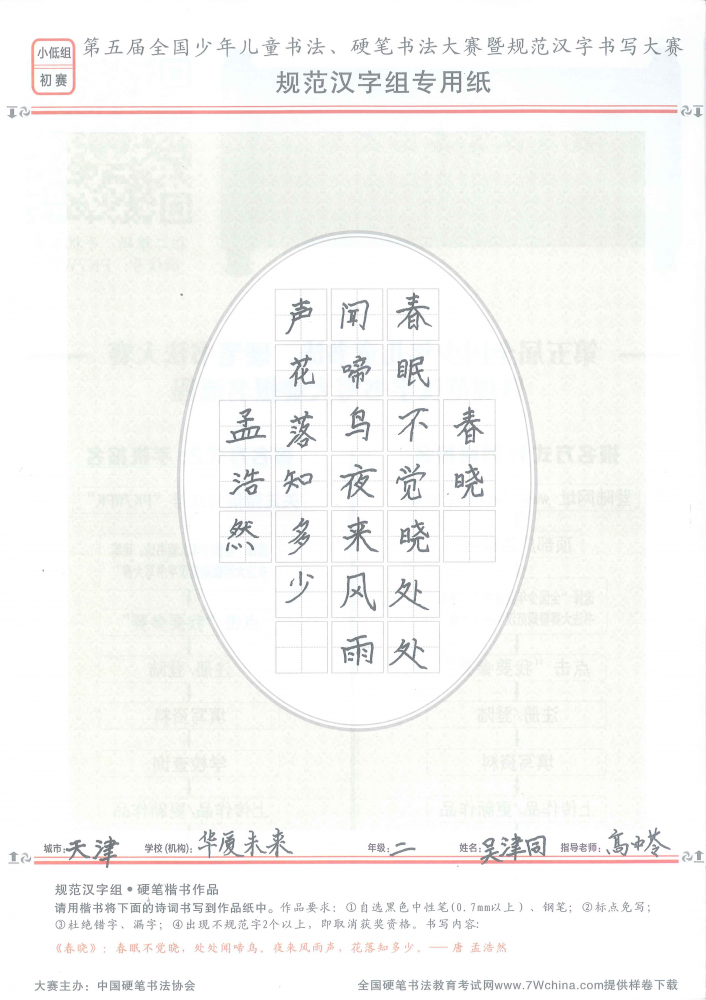 小低组
初赛
第五届全国少年儿童书法、硬笔书法大赛暨规范汉字书写大赛
规范汉字组专用纸
春晓
春眠不觉晓处处
闻啼鸟夜来风雨
声花落知多少
孟浩然
城市：天津 学校(机构)：华厦未来 年级：二 姓名：吴津同 指导老师：高中苓
规范汉字组•硬笔楷书作品
请用楷书将下面的诗词书写到作品纸中。作品要求：①自选黑色中性笔(0.7mm以上)、钢笔；②标点免写；
③杜绝错字、漏字；④出现不规范字2个以上，即取消获奖资格。书写内容：
《春晓》：春眠不觉晓，处处闻啼鸟。夜来风雨声，花落知多少。——唐 孟浩然
大赛主办：中国硬笔书法协会
全国硬笔书法教育考试网www.7Wchina.com提供样卷下载